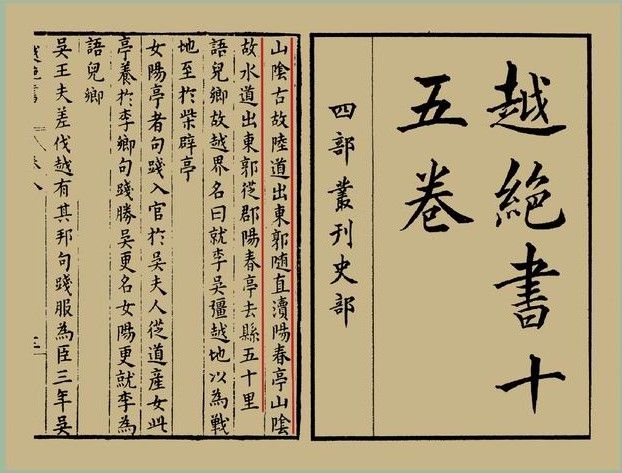 越絶書十
五卷
四部叢刊史部
山陰古故陸道出東郭随直瀆陽春亭山陰
故水道出東郭從郡陽春亭去縣五十里
語兒鄉故越界名曰就李吳彊越地以為戰
地至於柴辟亭
女陽亭者句踐入官於吳夫人從道産女此
亭養於李鄉句踐勝吳更名女陽更就李為
語兒鄉
吳王夫差伐越有其邦句踐服為臣三年吳